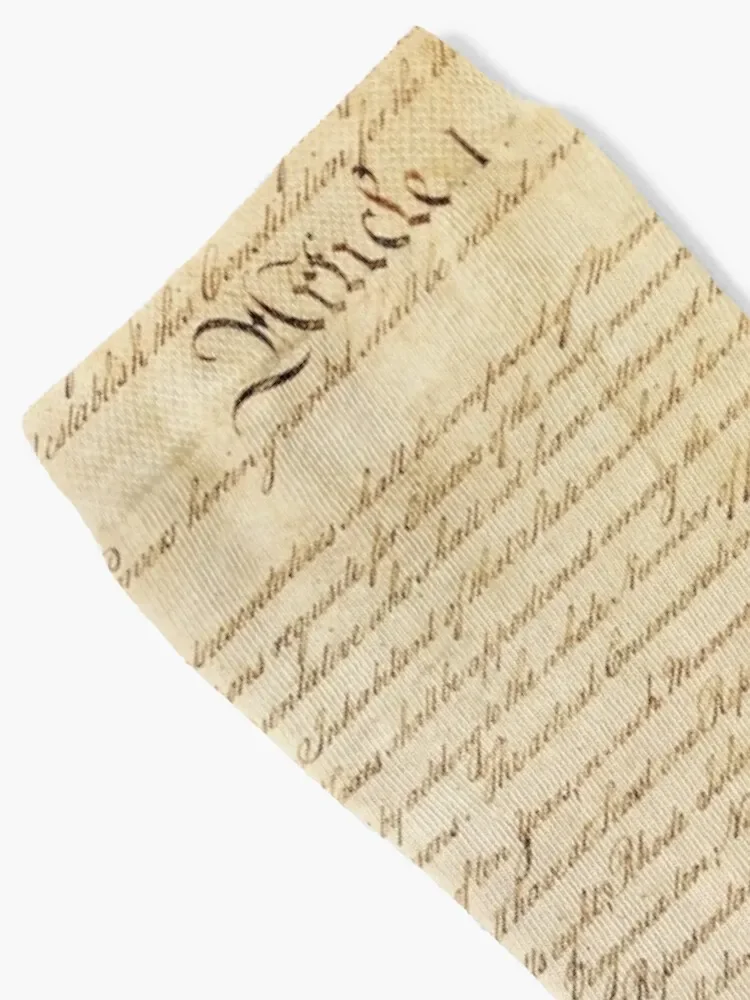 establish this Constitution for the
Article 1
wers herein granted shall be vested in
resentatives shall be composed of Mem
ons requisite for Electors of the most numerou
sentative who shall not have attained
Inhabitant of that State in which he sh
taxes shall be apportioned among the se
by adding to the whole Number of
ions. The actual Enumeration
of ten Years, in such Mann
ll have at Least one Rep
ts eight, Rhode Isla
Virginia ten, N
Representa